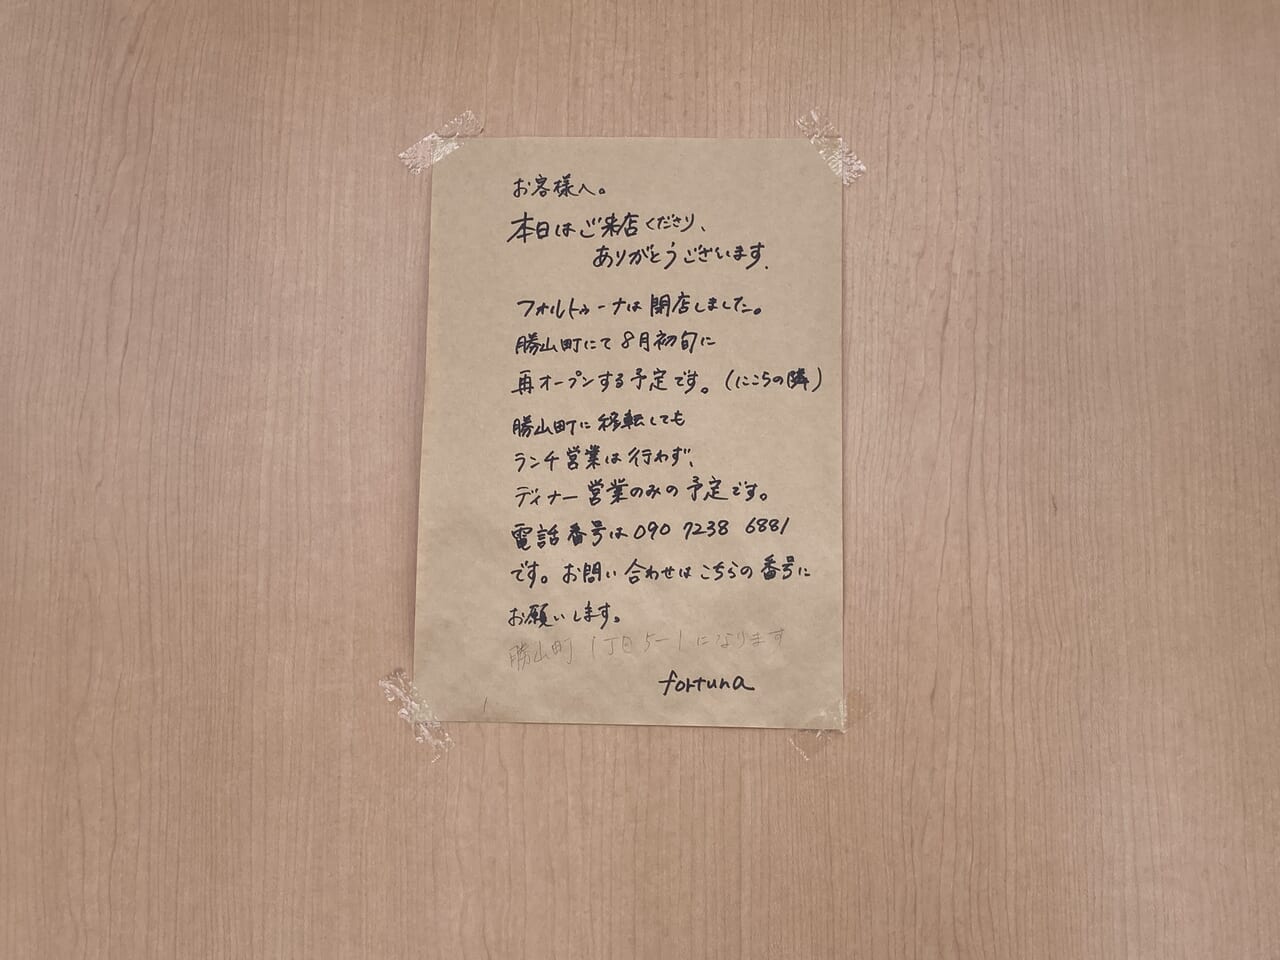 お客様へ。
本日はご来店くださり、
ありがとうございます.
フォルトゥーナは閉店しました。
勝山町にて8月初旬に
再オープンする予定です。(にこらの隣)
勝山町に移転しても
ランチ営業は行わず、
ディナー営業のみの予定です。
電話番号は090 7238 6881
です。お問い合わせはこちらの番号に
お願いします。
勝山町1丁目5-1になります
fortuna